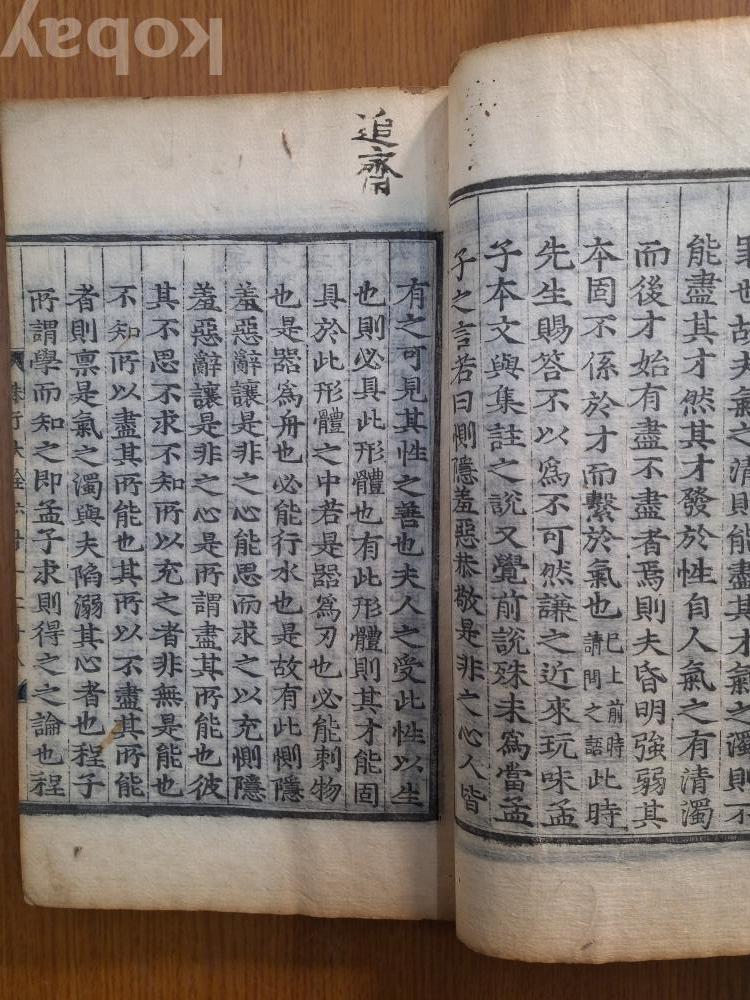 罪也故夫氣之清則
能盡其才然其才發於性自人氣之有清濁
而後才始有盡不盡者焉則夫昏明強弱其
本固不係於才而繫於氣也已上前時請問之語此時
先生賜答不以爲不可然謙之近來玩味孟
子本文與集註之說又覺前說殊未爲當孟
子之言若曰惻隱羞惡恭敬是非之心人皆
追齋
有之可見其性之善也夫人之受此性以生
也則必具此形體也有此形體則其才能固
具於此形體之中若是器爲刃也必能刺物
也是器爲舟也必能行水也是故有此惻隱
羞惡辭讓是非之心能思而求之以充惻隱
羞惡辭讓是非之心是所謂盡其所能也彼
其不思不求不知所以充之者非無是能也
不知所以盡其所能也其所以不盡其所能
者則禀是氣之濁與夫陷溺其心者也程子
所謂學而知之即孟子求則得之之論也程
kobay